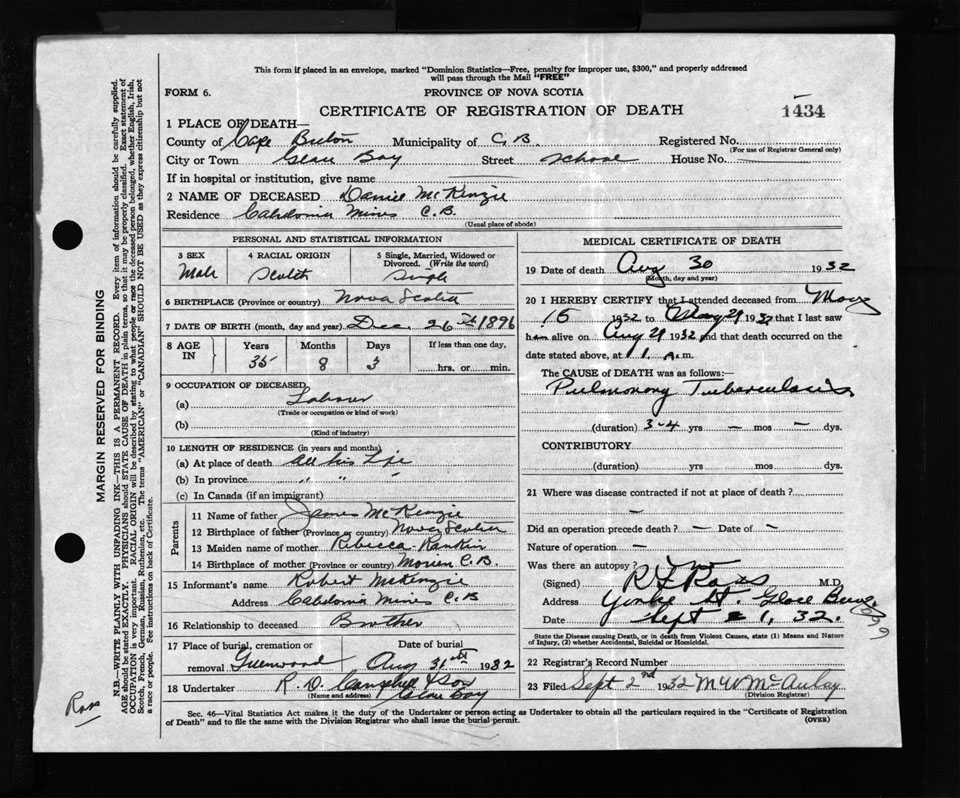 This form if placed in an envelope, marked "Dominion Statistics—Free, penalty for improper use, $300," and properly addressed
will pass through the Mail "FREE"
FORM 6.
PROVINCE OF NOVA SCOTIA
CERTIFICATE OF REGISTRATION OF DEATH
1434
1 PLACE OF DEATH—
County of Cape Breton Municipality of C.B. Registered No.
(For use of Registrar General only)
City or Town Glace Bay Street School House No.
If in hospital or institution, give name
2 NAME OF DECEASED Daniel McKenzie
Residence Caledonia Mines C.B.
(Usual place of abode)
PERSONAL AND STATISTICAL INFORMATION
3 SEX
Male
4 RACIAL ORIGIN
Scotch
5 Single, Married, Widowed or
Divorced. (Write the word)
Single
6 BIRTHPLACE (Province or country) Nova Scotia
7 DATE OF BIRTH (month, day and year) Dec. 26th 1896
8 AGE IN
Years 35
Months 8
Days 3
If less than one day,
hrs. or min.
9 OCCUPATION OF DECEASED
(a) Labour
(Trade or occupation or kind of work)
(b)
(Kind of industry)
10 LENGTH OF RESIDENCE (in years and months)
(a) At place of death All his Life
(b) In province " " "
(c) In Canada (if an immigrant)
Parents
11 Name of father James McKenzie
12 Birthplace of father (Province or country) Nova Scotia
13 Maiden name of mother Rebecca Rankin
14 Birthplace of mother (Province or country) Morien C.B.
15 Informant's name Robert McKenzie
Address Caledonia Mines C.B
16 Relationship to deceased Brother
17 Place of burial, cremation or Date of burial
removal Greenwood Aug 31st 1932
18 Undertaker R. D. Campbell & Son
(Name and address) Glace Bay
MEDICAL CERTIFICATE OF DEATH
19 Date of death Aug 30 1932
(Month, day and year)
20 I HEREBY CERTIFY that I attended deceased from May
15 1932 to Aug 29 1932 that I last saw
him alive on Aug 29 1932, and that death occurred on the
date stated above, at 1 A.m.
The CAUSE of DEATH was as follows:
Pulmonary Tuberculosis
(duration) 3-4 yrs — mos — dys.
CONTRIBUTORY
(duration) yrs mos dys.
21 Where was disease contracted if not at place of death?
—
Did an operation precede death? — Date of —
Nature of operation —
Was there an autopsy? no
(Signed) Ross M.D.
Address Yorke St. Glace Bay
Date Sept 1, 32.
State the Disease causing Death, or in death from Violent Causes, state (1) Means and Nature
of Injury, (2) whether Accidental, Suicidal or Homicidal.
22 Registrar's Record Number
23 Filed Sept 2nd 1932 M W McAulay
(Division Registrar)
Sec. 46—Vital Statistics Act makes it the duty of the Undertaker or person acting as Undertaker to obtain all the particulars required in the "Certificate of Registration
of Death" and to file the same with the Division Registrar who shall issue the burial permit.
(OVER)
MARGIN RESERVED FOR BINDING
N.B.—WRITE PLAINLY WITH UNFADING INK—THIS IS A PERMANENT RECORD. Every item of information should be carefully supplied.
AGE should be stated EXACTLY. PHYSICIANS should STATE CAUSE OF DEATH in plain terms, so that it may be properly classified. Exact statement of
OCCUPATION is very important. RACIAL ORIGIN will be described by stating to what people or race the deceased person belonged, whether English, Irish,
Scotch, French, German, Russian, Ruthenian, etc. The terms "AMERICAN" or "CANADIAN" SHOULD NOT BE USED as they express citizenship but not
a race or people. See instructions on back of Certificate.
Ross